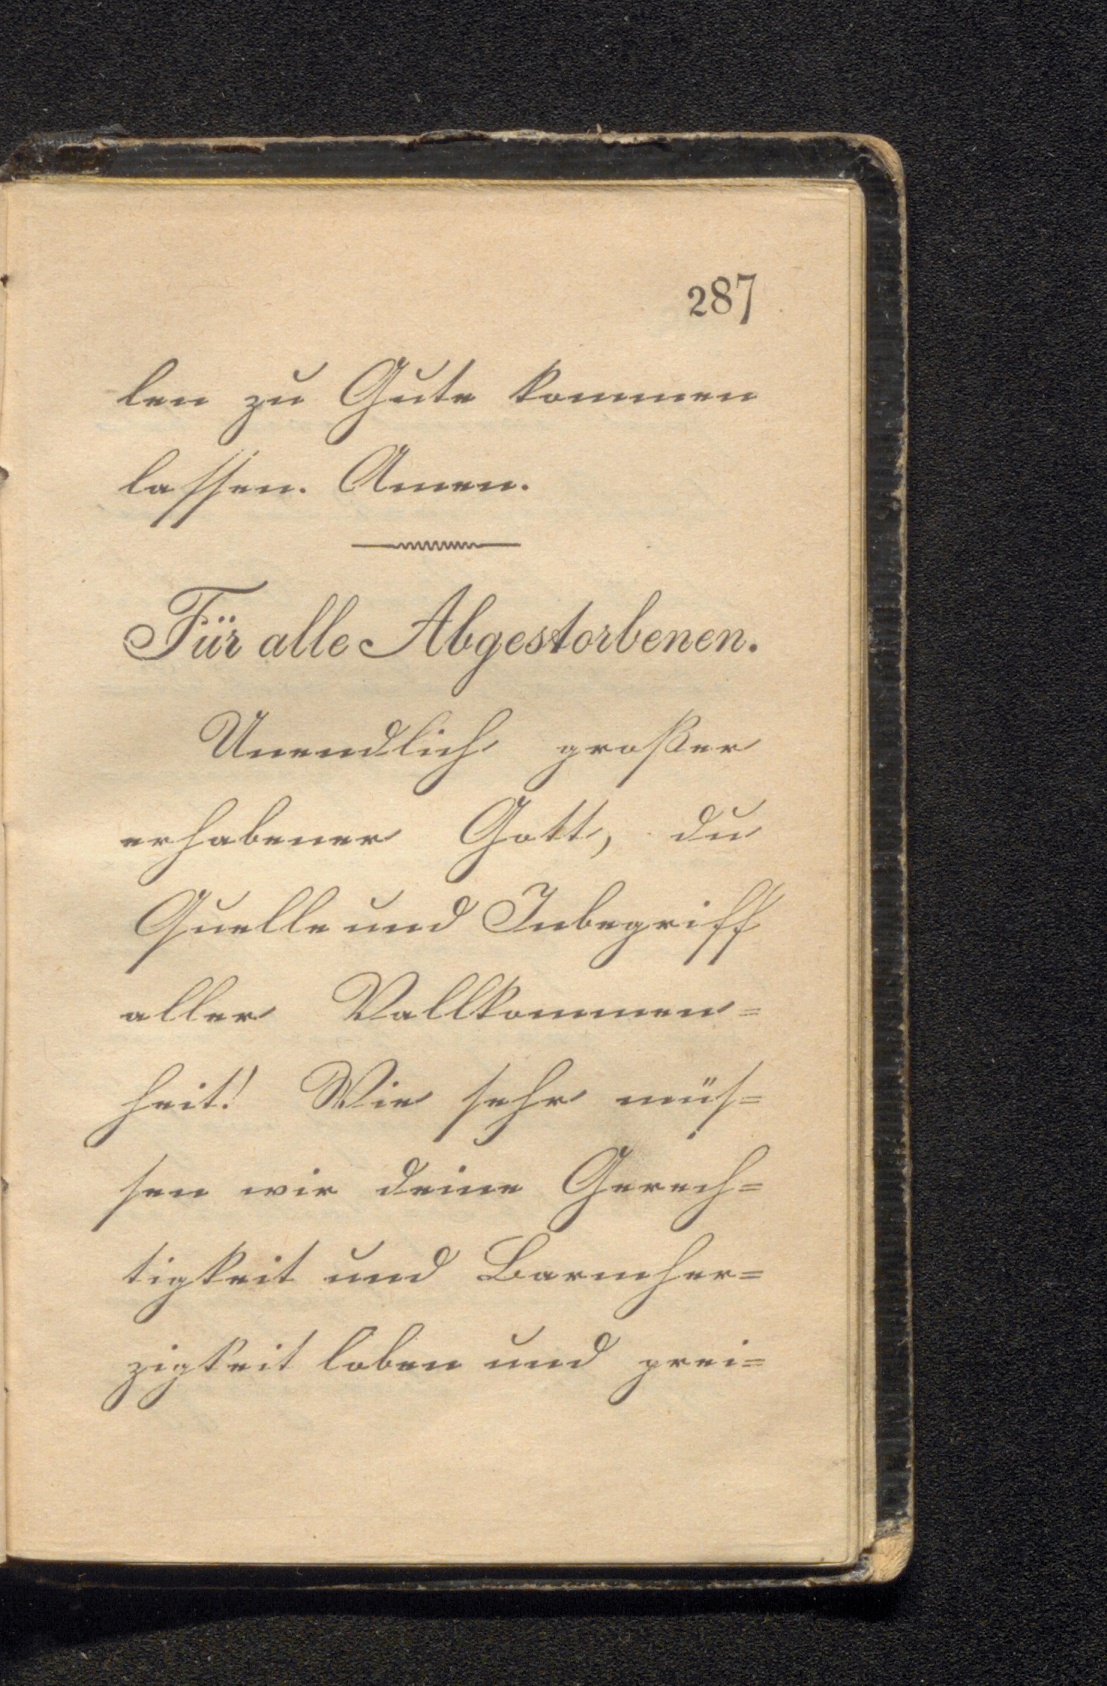 287
len zu Gute kommen
lassen. Amen.
Für alle Abgestorbenen.
Unendlich großer
erhabener Gott, du
Quelle und Inbegriff
aller Vollkommen=
heit! Wie sehr müs=
sen wir deine Gerech=
tigkeit und Barmher=
zigkeit loben und prei=